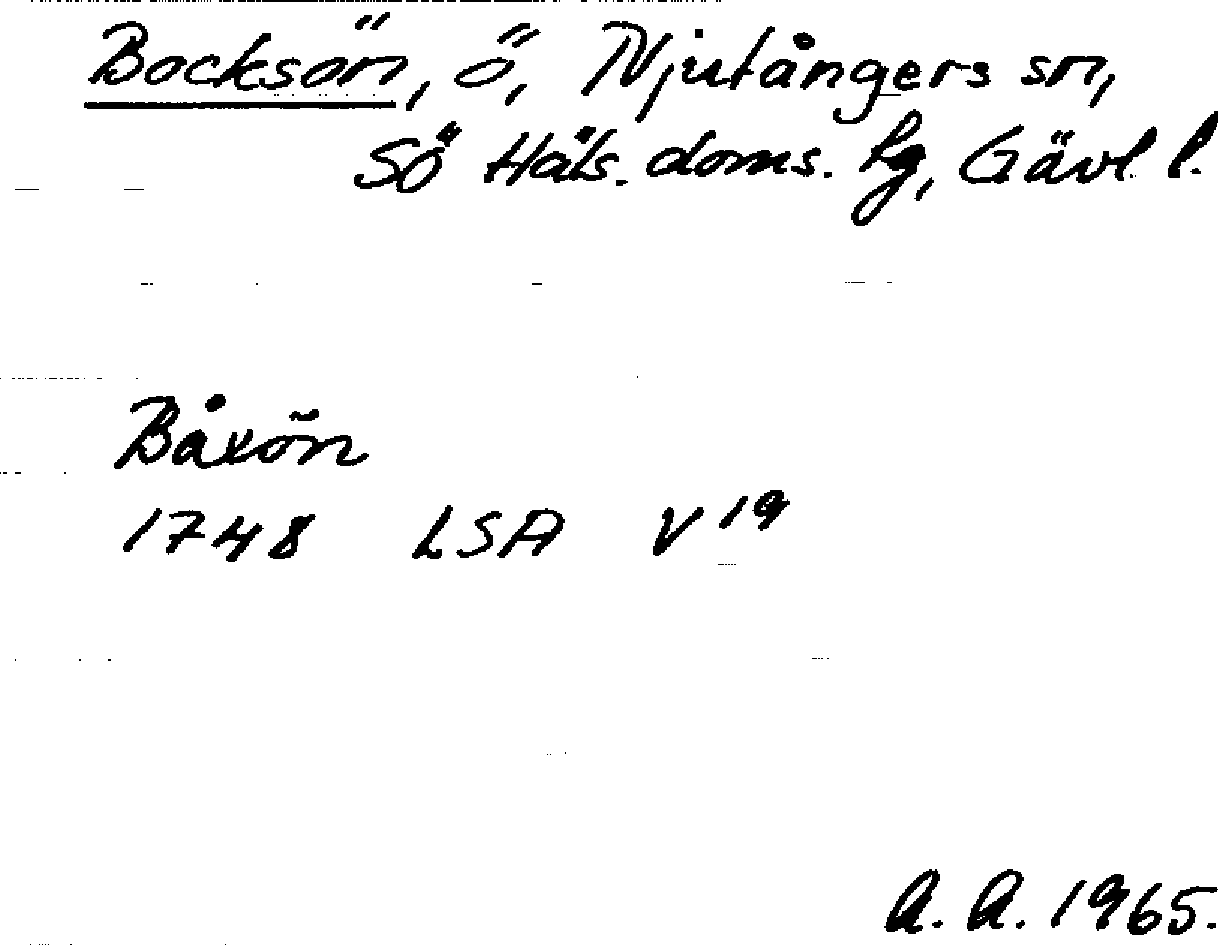 Bocksön, ö, Njutångers sn,
Sö Häls. doms. lg, Gävl. l.
Båxön
1748 LSA V19
A. A. 1965.